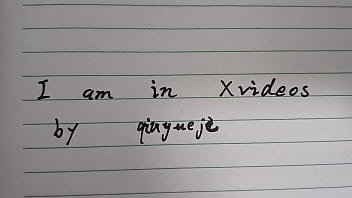 I am in Xvideos
by qinyueje